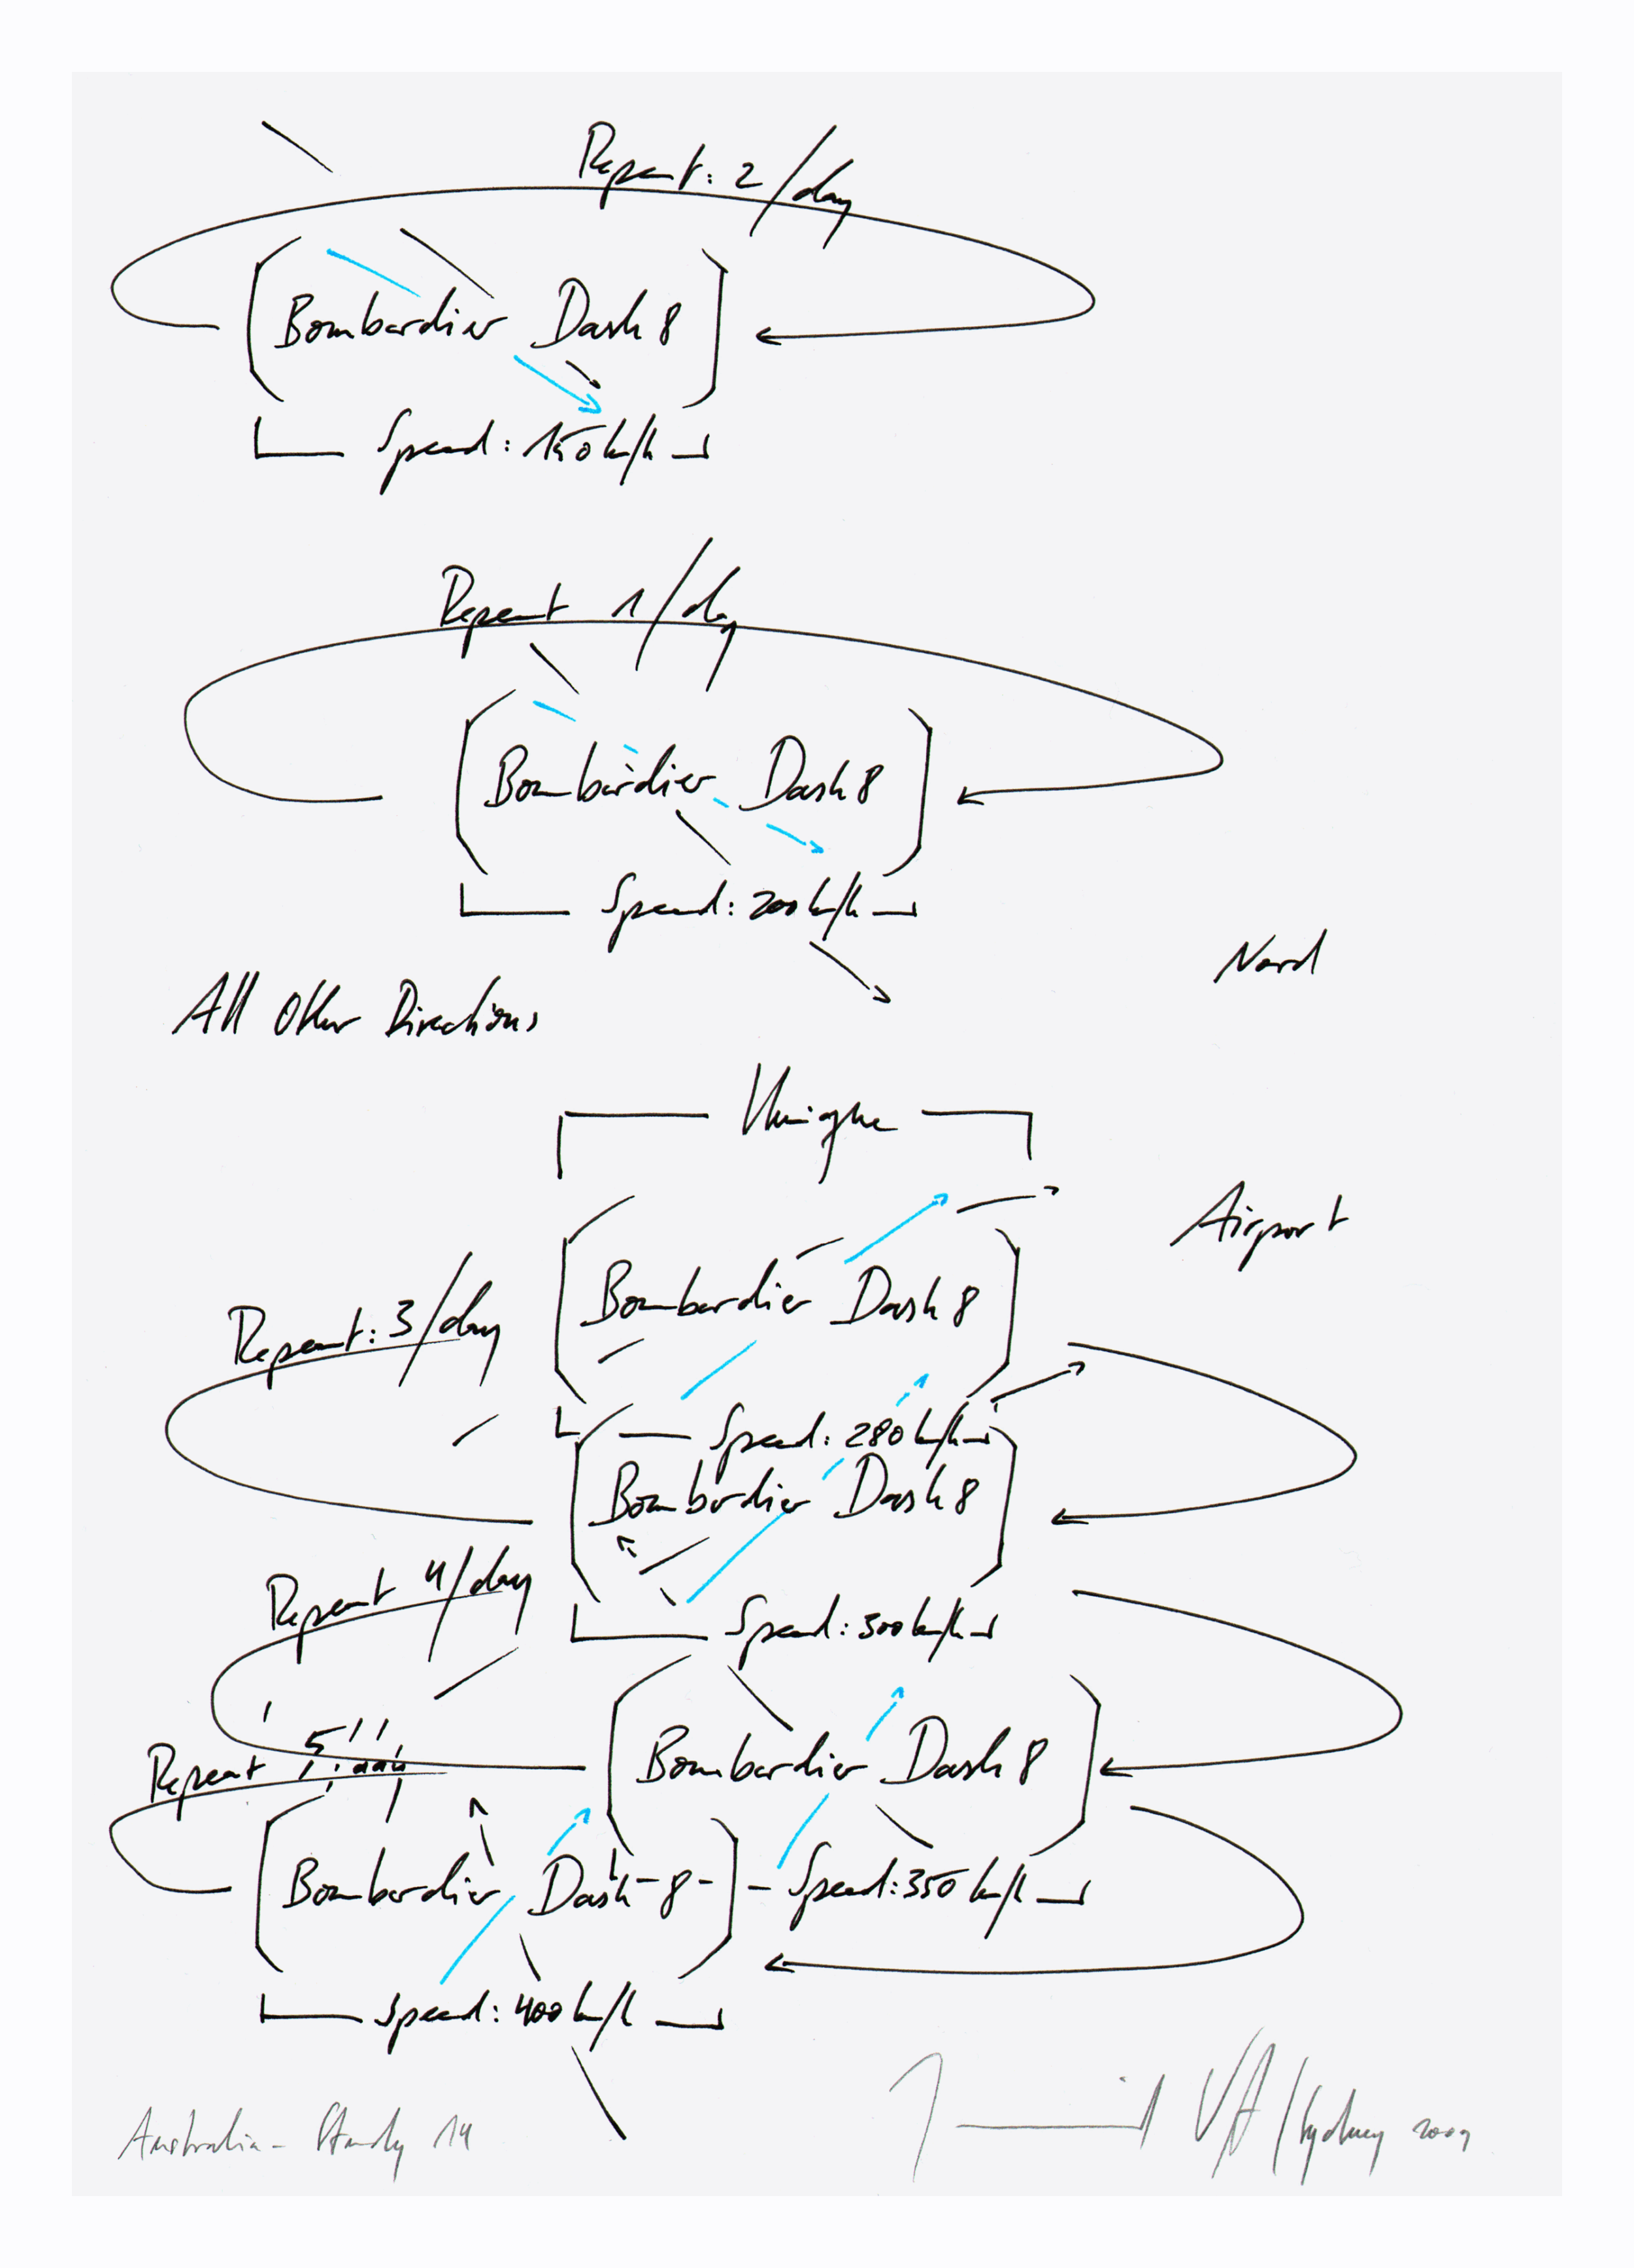 Repeat: 2/day
Bombardier Dash 8
Speed: 150 km/h
Repeat 1/day
Bombardier Dash 8
Speed: 200 km/h
Nord
All Other Directions
Unique
Airport
Bombardier Dash 8
Repeat: 3/day
Speed: 280 km/h
Bombardier Dash 8
Repeat 4/day
Speed: 300 km/h
Repeat 5
Bombardier Dash 8
Bombardier Dash 8
Speed: 350 km/h
Speed: 400 km/h
Australia - Study 14
Sydney 2009